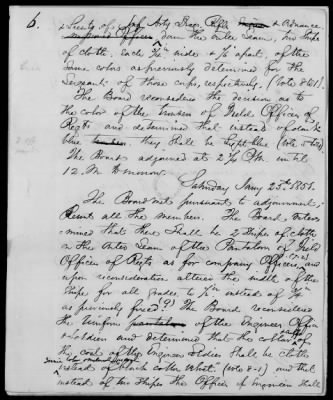 6.
& Lieuts of Arty Drag. Rifle & Advance
down the outer Seam, two Stripes
of cloth, each ½ in wide & ½ in apart, of the
same colors as previously determined for the
Sergeants of those corps, respectively. (Vote 8 to 1).
The Board reconsidered the decision as to
the color of the trousers of Field Officers of
Regts and determined that instead of dark
blue they shall be light blue (vote 5 to 4)
The Board adjourned at 2½ P.M. until
12. M. tomorrow.
Saturday Jany 25th 1851.
The Board met pursuant to adjournment,
Present all the members. The Board deter-
mined that there shall be 2 Stripes of cloth
on the outer Seam of the Pantaloon of Field
Officers of Regts as for company Officers, and
upon reconsideration altered the width of the
Stripe for all grades to ½ in instead of ¾ in
as previously fixed. (9) The Board reconsidered
the Uniform of the Engineer Officer
& Soldier and determined that the collar of
the coat of the Engineer Soldier shall be cloth
instead of black cotton Velvet. (Vote 8-1) and that
instead of two Stripes the Officers of Engineers shall